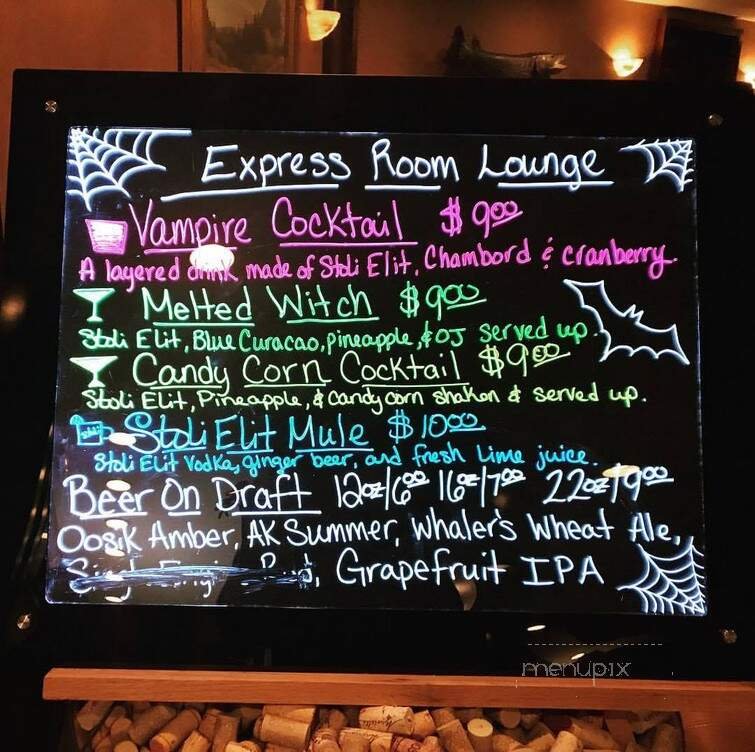 Express Room Lounge
Vampire Cocktail $9.00
A layered drink made of Stoli Elit, Chambord & cranberry.
Melted Witch $9.00
Stoli Elit, Blue Curacao, pineapple, & OJ served up.
Candy Corn Cocktail $9.00
Stoli Elit, Pineapple, & Candy corn shaken & served up.
Stoli Elit Mule $10.00
Stoli Elit Vodka, ginger beer, and fresh Lime juice.
Beer On Draft 12oz/6.00 16oz/7.00 22oz/9.00
Oosik Amber, AK Summer, Whaler's Wheat Ale,
Grapefruit IPA
menupix